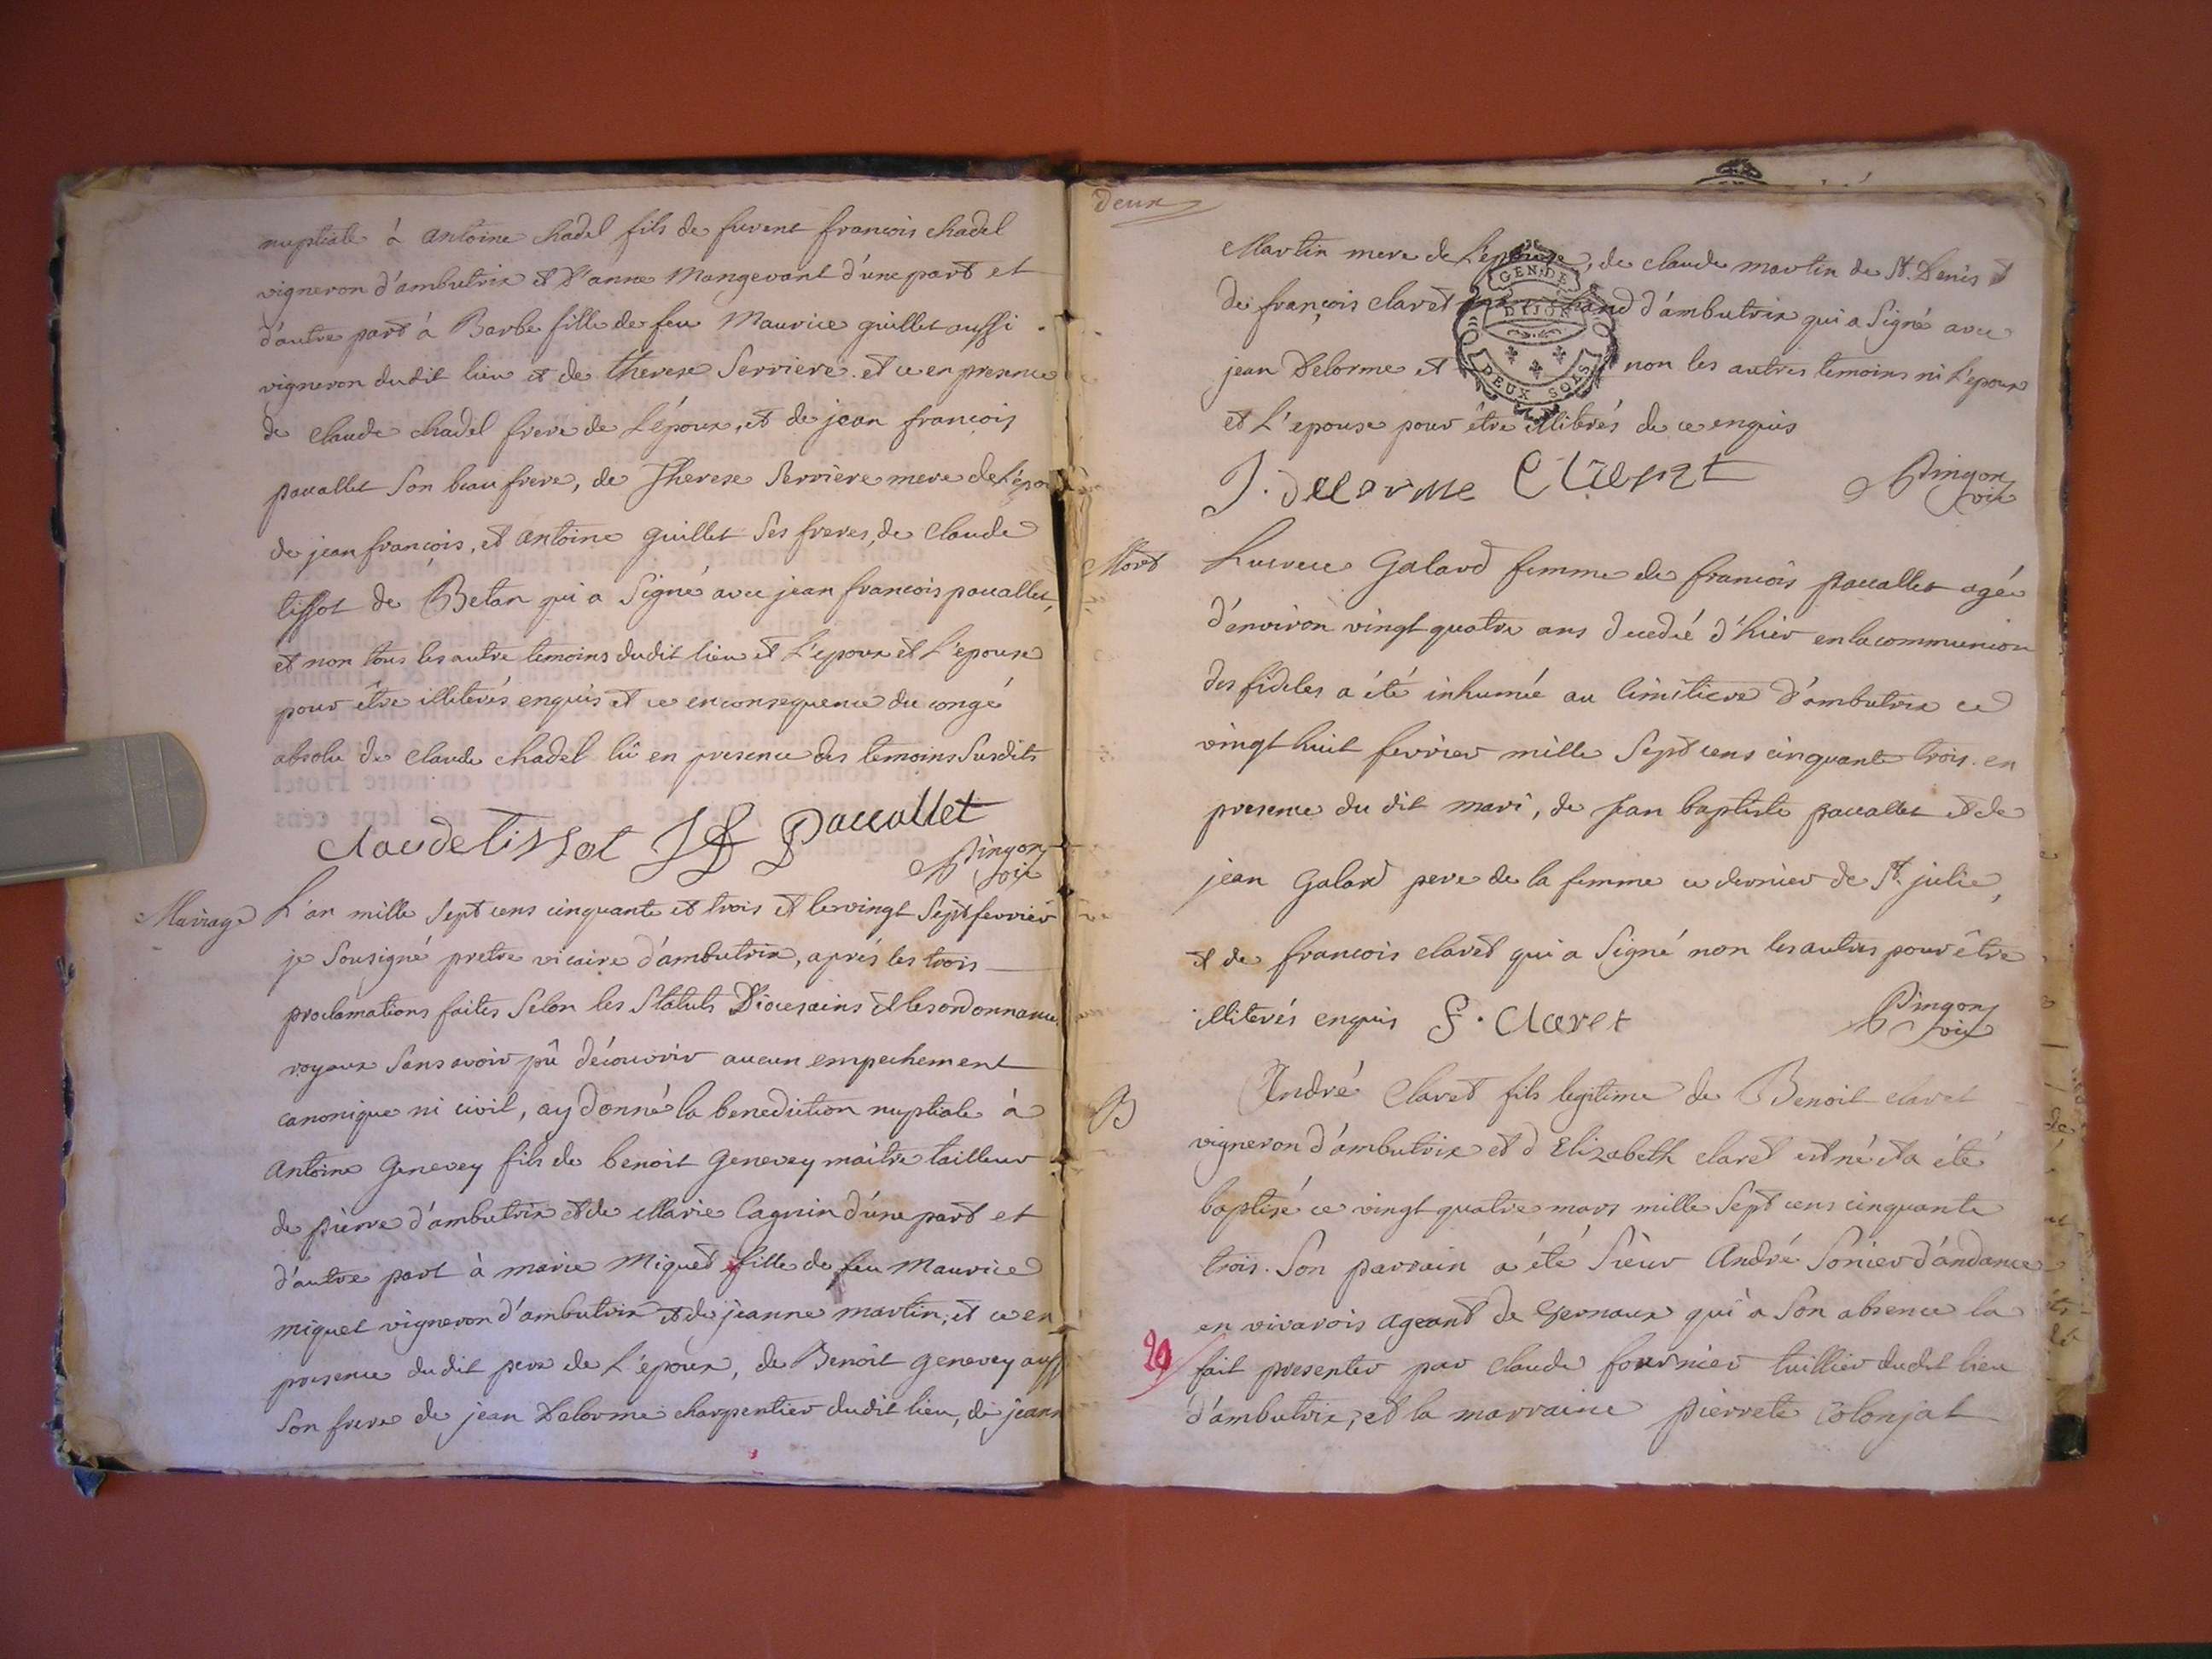 nuptiale à antoine chadel fils de furent francois chadel
vigneron d'ambutrix et d'anne Mangevant d'une part et
d'autre part à Barbe fille de feu Maurice guillet aussi
vigneron dudit lieu et de therese Serriere. et ce en presence
de claude chadel frere de L'époux, et de jean francois
paccallet Son beau frere, de Therese Serriere mere de L'épou
de jean françois, et antoine guillet Ses freres, de Claude
tissot de Betan qui a Signé avec jean francois paccallet,
et non tous les autre temoins dudit lieu et L'epoux et L'epouse
pour être illiterés enquis et ce en consequence du congé
absolu de claude chadel lû en presence des temoins Susdits
claude tissot JF Paccallet
Pingon vic
Mariage L'an mille Sept cens cinquante et trois et le vingt Sept fevrier
je Sousigné pretre vicaire d'ambutrix, aprés les trois
proclamations faites Selon les Statuts Diocesains et les ordonnances
royaux Sans avoir pû découvrir aucun empechement
canonique ni civil, ay donné la benediction nuptiale à
antoine Genevey fils de benoit Genevey maitre tailleur
de pierre d'ambutrix et de Marie Cagnin d'une part et
d'autre part à marie Miguet fille de feu Maurice
miguet vigneron d'ambutrix et de jeanne martin, et ce en
presence dudit pere de L'époux, de Benoit genevey auss
Son frere de jean Delorme charpentier dudit lieu, de jeann
deux
Martin mere de L'epouse, de claude martin de St. Denis et
de françois claret d'ambutrix qui a Signé avec
jean Delorme et non les autres temoins ni L'epoux
et L'epouse pour être illiterés de ce enquis
GEN. DE
DIJON
DEUX SOLS
J. delorme Claret
Pingon vic
Mort
Galard femme de francois paccallet agée
d'environ vingt quatre ans decedée d'hier en la communion
des fideles a été inhumée au Cimitiere d'ambutrix ce
vingt huit fevrier mille Sept cens cinquante trois. en
presence du dit mari, de Jean baptiste paccallet et de
jean Galard pere de la femme ce dernier de St. julie,
et de francois claret qui a Signé non les autres pour être
illiterés enquis F. Claret
Pingon vic
B
André Claret fils legitime de Benoit claret
vigneron d'ambutrix et d'Elizabeth claret est né et a été
baptisé ce vingt quatre mars mille Sept cens cinquante
trois. Son parrain a été Sieur André Sonier d'andance
en vivarois agent de qui a Son absence la
fait presenter par claude fournier tuillier dudit lieu
d'ambutrix, et la marraine pierrete Colonjat